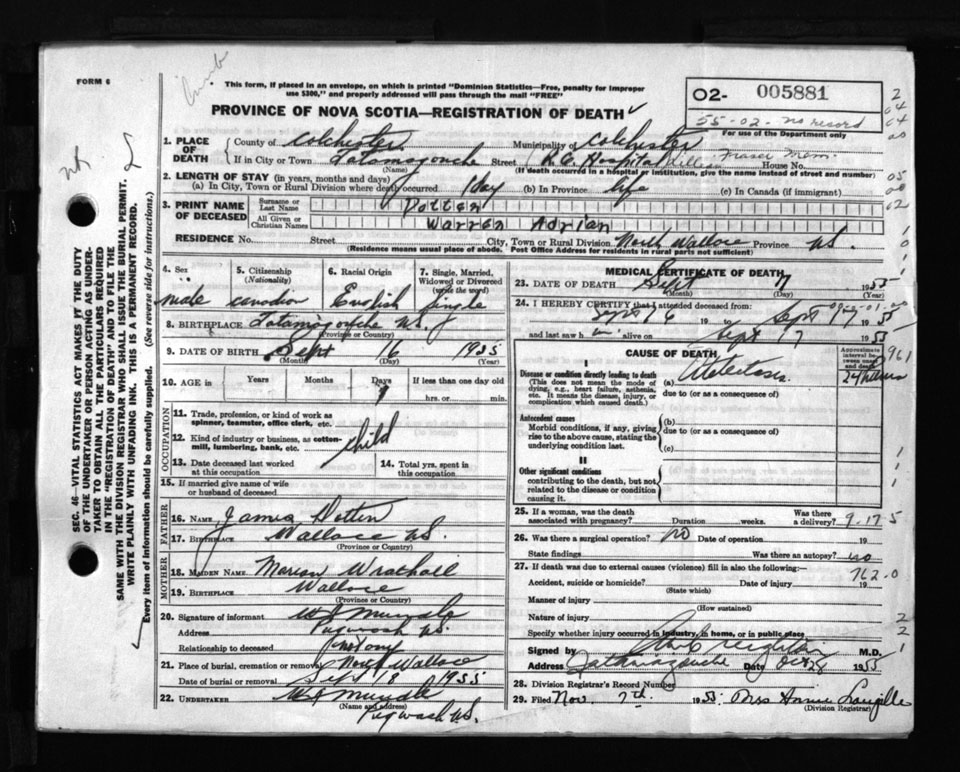 FORM 6
This form, if placed in an envelope, on which is printed "Dominion Statistics—Free, penalty for improper
use $300," and properly addressed will pass through the mail "FREE"
PROVINCE OF NOVA SCOTIA—REGISTRATION OF DEATH
02- 005881
55-02- no record
For use of the Department only
1. PLACE OF DEATH
County of Colchester Municipality of Colchester
If in City or Town Tatamagouche Street R.C. Hospital Lillian Fraser Mem. House No.
(Name) (If death occurred in a hospital or institution, give the name instead of street and number)
2. LENGTH OF STAY (in years, months and days)
(a) In City, Town or Rural Division where death occurred 1 day (b) In Province life (c) In Canada (if immigrant)
3. PRINT NAME OF DECEASED
Surname or Last Name
All Given or Christian Names Warren Adrian
RESIDENCE No. Street City, Town or Rural Division North Wallace Province N.S.
(Residence means usual place of abode. Post Office Address for residents in rural parts not sufficient)
4. Sex male
5. Citizenship (Nationality) canadian
6. Racial Origin English
7. Single, Married, Widowed or Divorced (write the word) Single
8. BIRTHPLACE Tatamagouche N.S.
(Province or Country)
9. DATE OF BIRTH Sept 16 1955
(Month) (Day) (Year)
10. AGE in Years Months Days If less than one day old
1 hrs. or min.
OCCUPATION
11. Trade, profession, or kind of work as spinner, teamster, office clerk, etc.
12. Kind of industry or business, as cotton-mill, lumbering, bank, etc. child
13. Date deceased last worked at this occupation
14. Total yrs. spent in this occupation
15. If married give name of wife or husband of deceased
FATHER
16. NAME James
17. BIRTHPLACE Wallace N.S.
(Province or Country)
MOTHER
18. MAIDEN NAME Marion Wrathall
19. BIRTHPLACE Wallace
(Province or Country)
20. Signature of informant
Address Pugwash N.S.
Relationship to deceased not any
21. Place of burial, cremation or removal North Wallace
Date of burial or removal Sept 18 1955
22. UNDERTAKER
(Name and address)
Pugwash N.S.
MEDICAL CERTIFICATE OF DEATH
23. DATE OF DEATH Sept 17 1955
(Month) (Day)
24. I HEREBY CERTIFY that I attended deceased from
Sept 16 19 Sept 17 1955
and last saw h im alive on Sept 17 1955
CAUSE OF DEATH
Approximate interval between onset and death
I
Disease or condition directly leading to death (a) Atelectasis 24 hours
(This does not mean the mode of dying, e.g., heart failure, asthenia, etc. It means the disease, injury, or complication which caused death.) due to (or as a consequence of)
Antecedent causes
Morbid conditions, if any, giving rise to the above cause, stating the underlying condition last.
(b)
due to (or as a consequence of)
(c)
II
Other significant conditions
contributing to the death, but not related to the disease or condition causing it.
25. If a woman, was the death associated with pregnancy? Duration weeks. Was there a delivery? 9-17-5
26. Was there a surgical operation? no Date of operation 19
State findings Was there an autopsy? no
27. If death was due to external causes (violence) fill in also the following:—
762-0
Accident, suicide or homicide? Date of injury 19
(State which)
Manner of injury
(How sustained)
Nature of injury
Specify whether injury occurred in industry, in home, or in public place
Signed by M.D.
Address Tatamagouche Date Oct 28 1955
28. Division Registrar's Record Number
29. Filed Nov. 7th 1955 Mrs Annie Langille
(Division Registrar)
SEC. 46—VITAL STATISTICS ACT MAKES IT THE DUTY
OF THE UNDERTAKER OR PERSON ACTING AS UNDER-
TAKER TO OBTAIN ALL THE PARTICULARS REQUIRED
IN THE "REGISTRATION OF DEATH" AND TO FILE THE
SAME WITH THE DIVISION REGISTRAR WHO SHALL ISSUE THE BURIAL PERMIT.
WRITE PLAINLY WITH UNFADING INK. THIS IS A PERMANENT RECORD.
Every item of information should be carefully supplied. (See reverse side for instructions.)